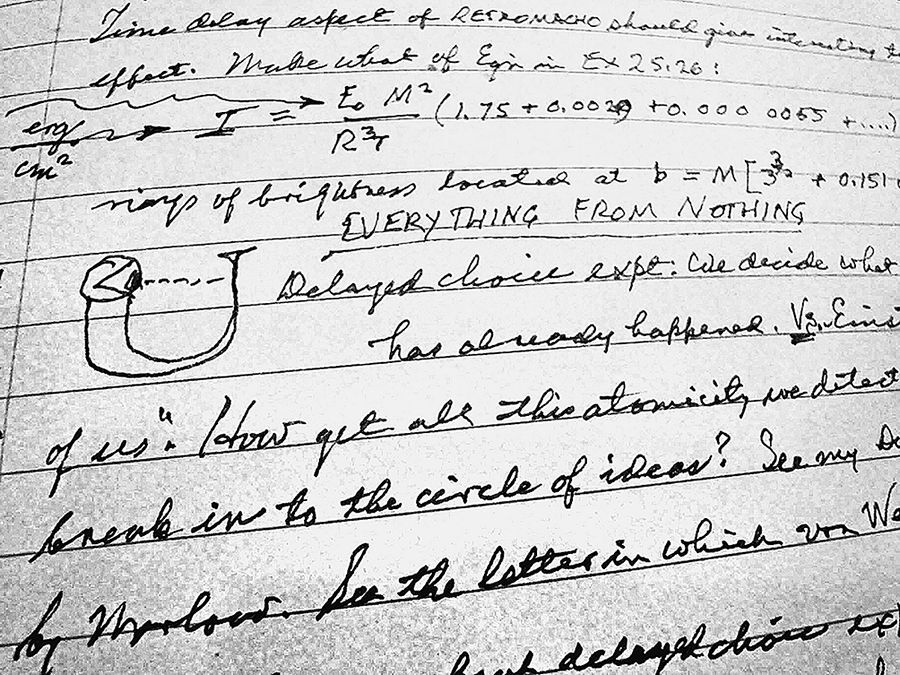 Time delay aspect of RETROMACHO should give interesting
effect. Make what of Eqn in Ex 25.26:
erg/cm² → I = E₀ M²/R³r (1.75 + 0.0029 + 0.000 0055 + ....)
rings of brightness located at b = M[3^3/2 + 0.151
EVERYTHING FROM NOTHING
Delayed choice expt: We decide what
has already happened. Vs. Einst
of us". How get all this atomicity, we detect
break in to the circle of ideas? See my
by Marlow. See the letter in which von We
delayed choice ex